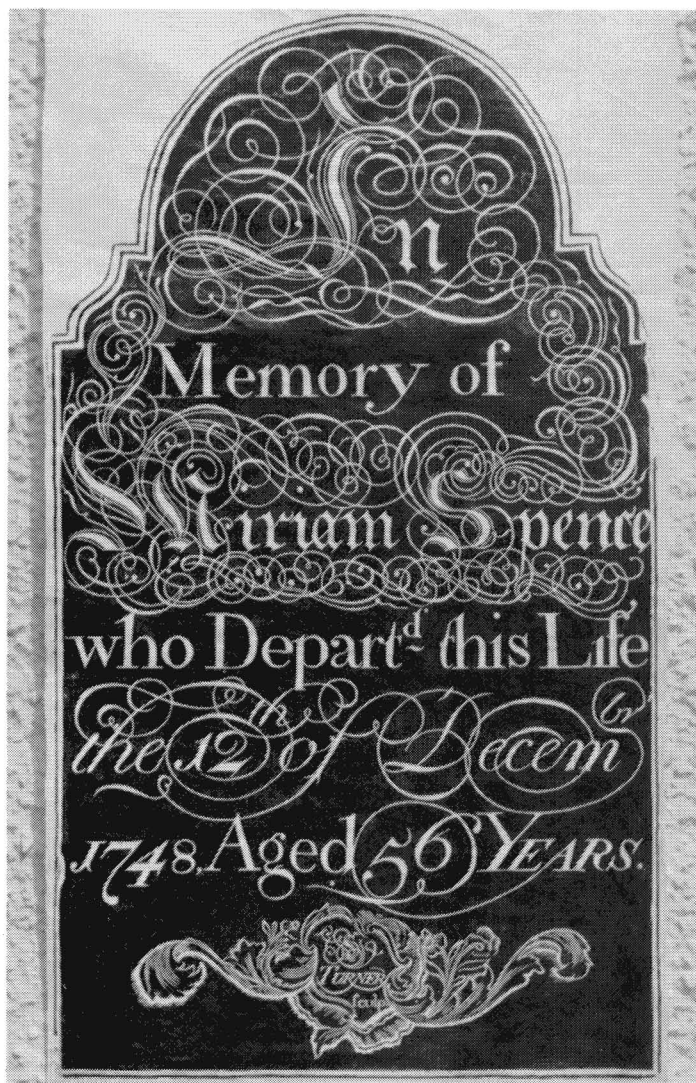 In
Memory of
Miriam Spence
who Depart.d this Life
the 12th of Decembr
1748, Aged 56 Years.
Turner